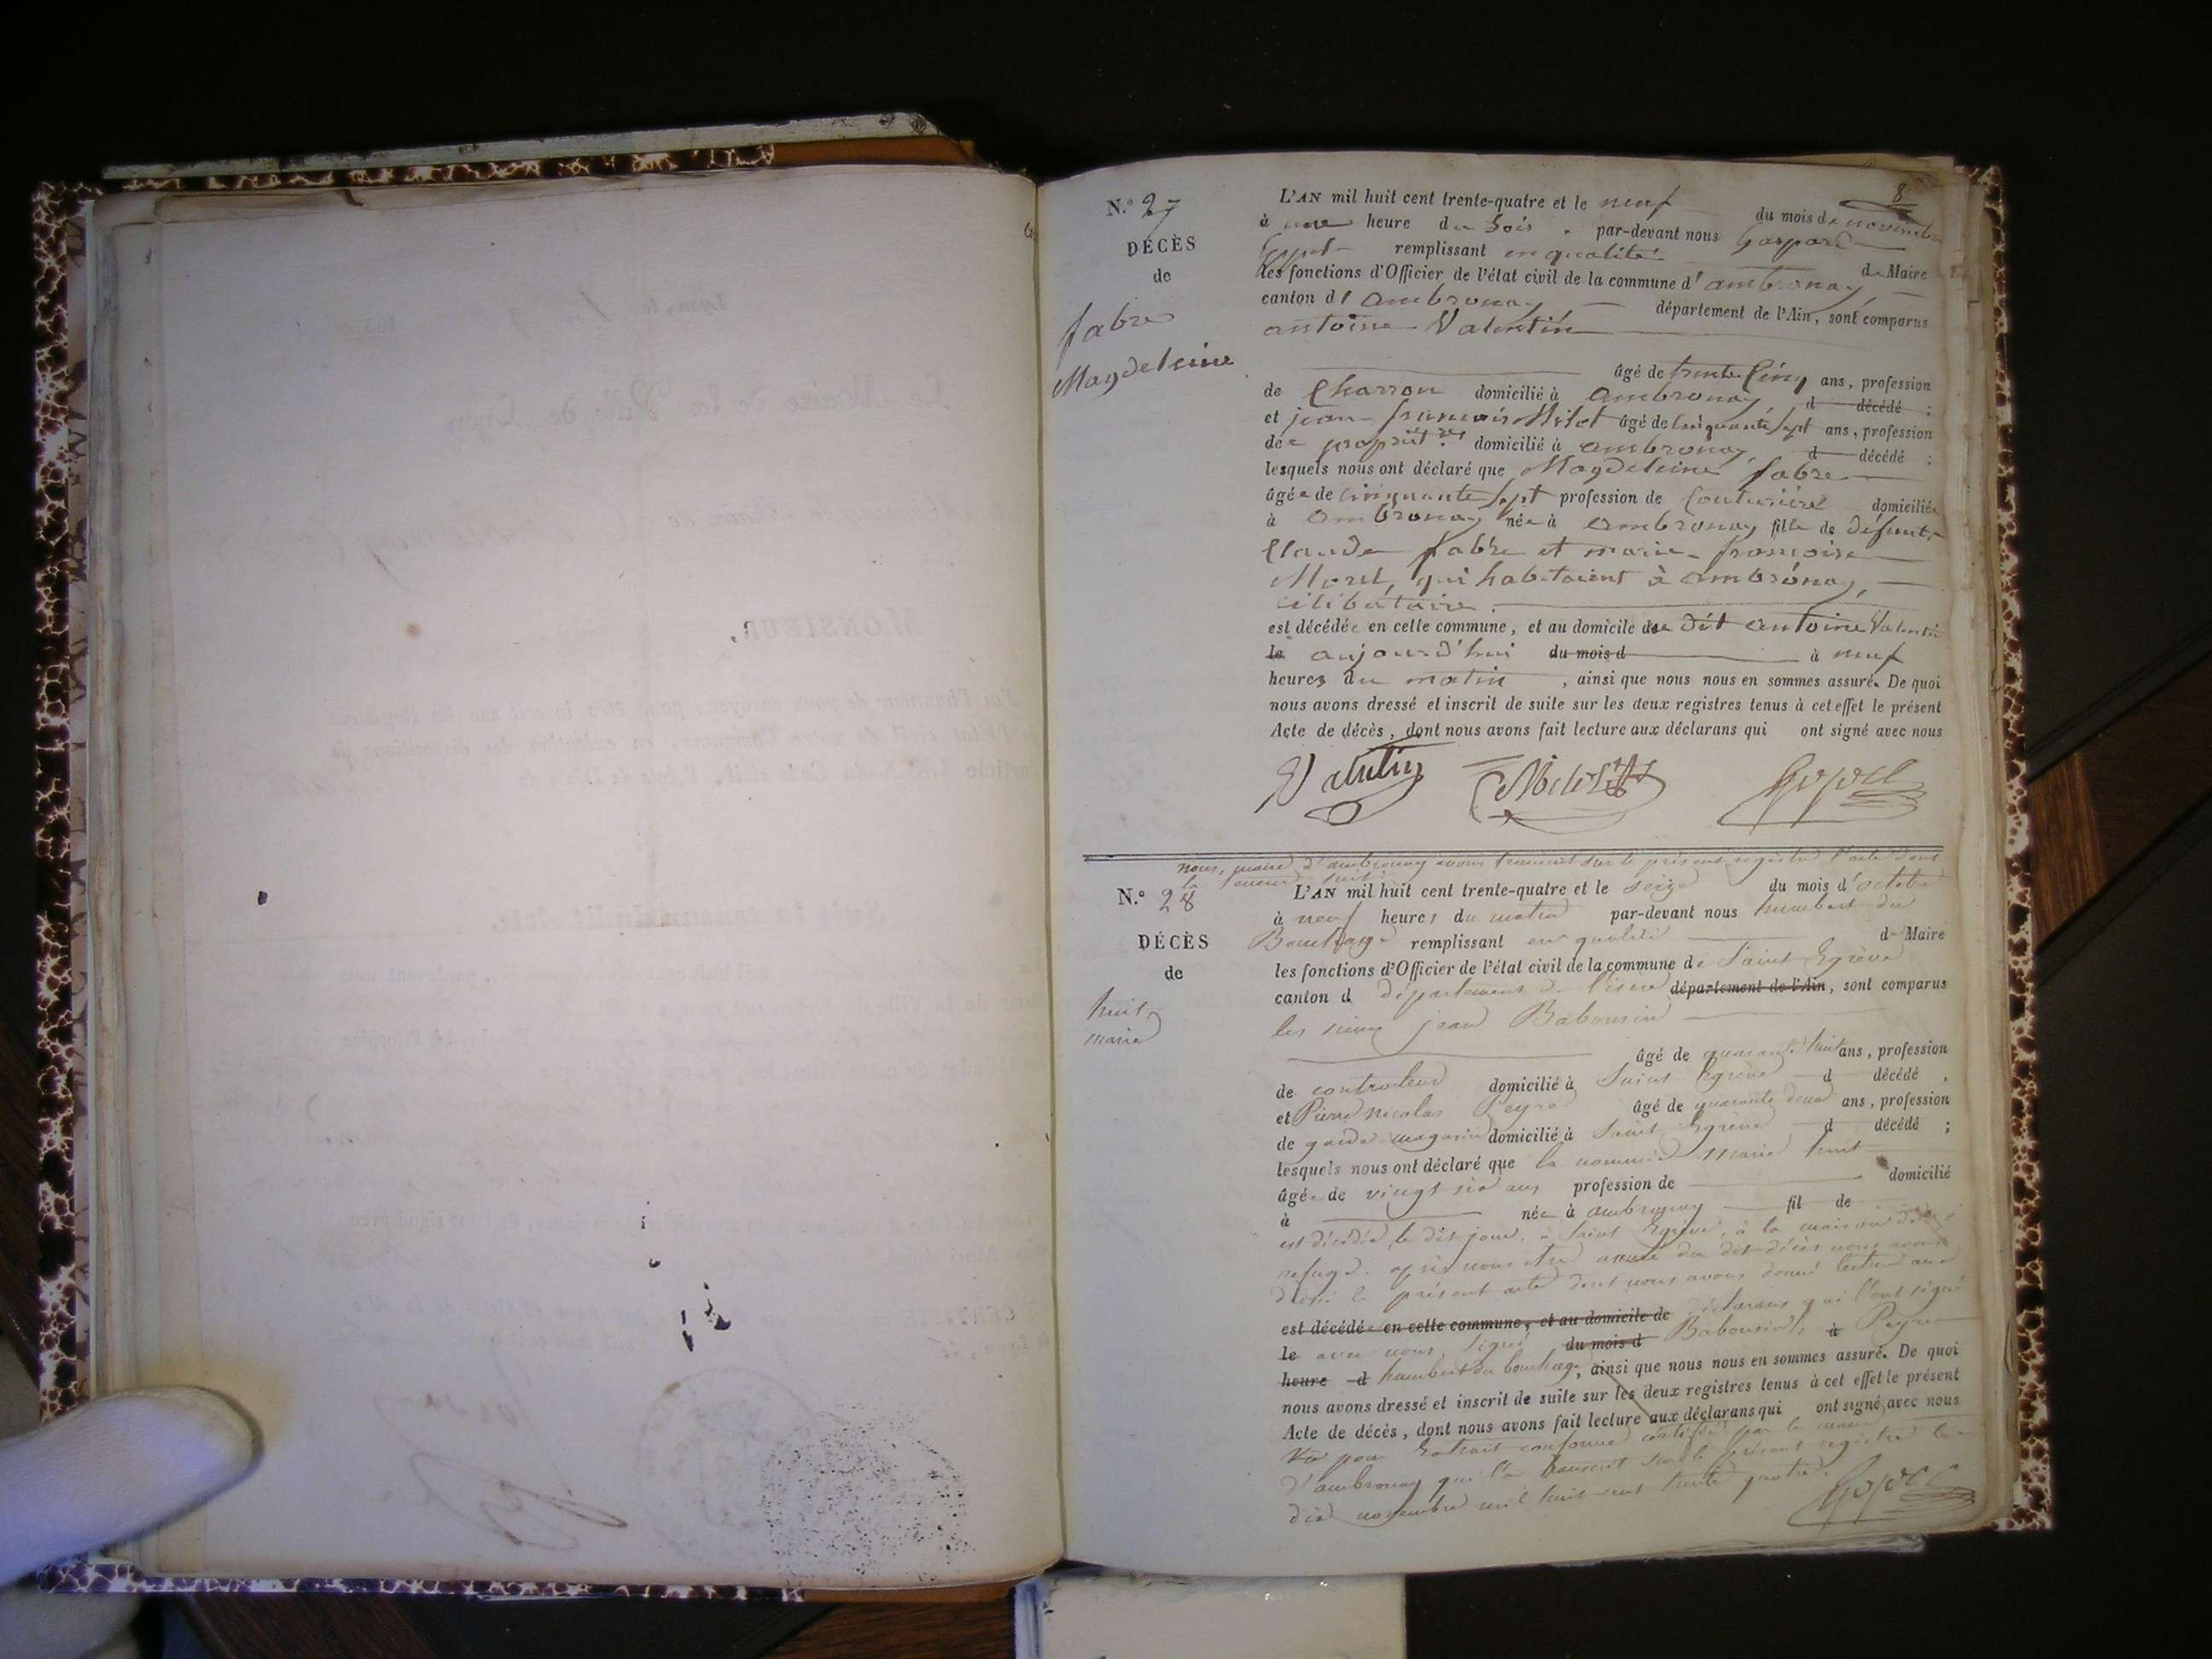 8
N.° 27
DÉCÈS
de
fabre
Magdeleine
L'AN mil huit cent trente-quatre et le neuf du mois de novembre
à une heure du soir par-devant nous Gaspard
remplissant en qualité de Maire
les fonctions d'Officier de l'état civil de la commune d'ambronay
canton d'ambronay département de l'Ain, sont comparus
antoine Valentin
âgé de trente cinq ans, profession
de Charron domicilié à ambronay d décédé ;
et jean françois Milet âgé de cinquante sept ans, profession
de propriét.re domicilié à ambronay d décédé ;
lesquels nous ont déclaré que Magdeleine fabre
âgée de cinquante sept profession de Couturière domiciliée
à ambronay née à ambronay fille de défunts
Claude fabre et marie françoise
Morel, qui habitaient à ambronay,
célibataire.
est décédée en cette commune, et au domicile du dit antoine Valentin
le aujourd'hui du mois d à neuf
heures du matin, ainsi que nous nous en sommes assuré. De quoi
nous avons dressé et inscrit de suite sur les deux registres tenus à cet effet le présent
Acte de décès, dont nous avons fait lecture aux déclarans qui ont signé avec nous
Valentin
nous, maire d'ambronay avons transcrit sur le présent registre l'acte dont
la teneur suit
N.° 28
DÉCÈS
de
huit,
marie
L'AN mil huit cent trente-quatre et le seize du mois d'octobre
à neuf heures du matin par-devant nous humbert du
Bouchage remplissant en qualité de Maire
les fonctions d'Officier de l'état civil de la commune de Saint Egrève
canton d département de l'isère département de l'Ain, sont comparus
les sieurs jean Babousin
âgé de quarante huit ans, profession
de controleur domicilié à Saint Egrève d décédé,
et Pierre nicolas Peyre âgé de quarante deux ans, profession
de garde magasin domicilié à Saint Egrève d décédé ;
lesquels nous ont déclaré que la nommée Marie huit
âgée de vingt six ans profession de domicilié
à née à ambronay fil de
est décédée, le dit jour, à Saint Egrève, à la maison de
refuge. après nous être assuré du dit décès nous avons
dressé le présent acte dont nous avons donné lecture aux
est décédé en cette commune, et au domicile de déclarans qui l'ont signé
le avec nous, signé du mois d Babousin, à Peyre
heure d humbert du bouchage, ainsi que nous nous en sommes assuré. De quoi
nous avons dressé et inscrit de suite sur les deux registres tenus à cet effet le présent
Acte de décès, dont nous avons fait lecture aux déclarans qui ont signé avec nous
Vu pour Extrait conforme certifié par le maire
d'ambronay qui l'a transcrit sur le présent registre le
dix novembre mil huit cent trente quatre.